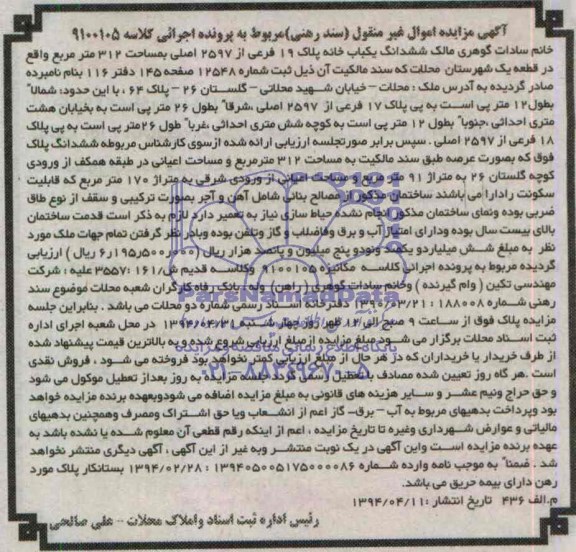 آگهی مزایده اموال غیر منقول (سند رهنی)مربوط به پرونده اجرائی کلاسه ۹۱۰۰۱۰۵
خانم سادات گوهری مالک ششدانگ یکباب خانه پلاک ۱۹ فرعی از ۲۵۹۷ اصلی بمساحت ۳۱۲ متر مربع واقع
در قطعه یک شهرستان محلات که سند مالکیت آن ذیل ثبت شماره ۱۲۵۴۸ صفحه ۱۴۵ دفتر ۱۱۶ بنام نامبرده
صادر گردیده به آدرس ملک : محلات – خیابان شهید محلاتی – گلستان ۲۶ – پلاک ۶۴ ، با این حدود: شمالا"
بطول۱۲ متر پی است به پی پلاک ۱۷ فرعی از ۲۵۹۷ اصلی ،شرقا" بطول ۲۶ متر پی است به بخیابان هشت
متری احداثی ،جنوبا" بطول ۱۲ متر پی است به کوچه شش متری احداثی ،غربا" طول ۲۶متر پی است به پی پلاک
۱۸ فرعی از ۲۵۹۷ اصلی . سپس برابر صورتجلسه ارزیابی ارائه شده ازسوی کارشناس مربوطه ششدانگ پلاک
فوق که بصورت عرصه طبق سند مالکیت به مساحت ۳۱۲ مترمربع و مساحت اعیانی در طبقه همکف از ورودی
کوچه گلستان ۲۶ به متراژ ۹۱ متر مربع و مساحت اعیانی از ورودی شرقی به متراژ ۱۷۰ متر مربع که قابلیت
سکونت رادارا می باشند ساختمان مذکور از مصالح بنائی شامل آهن و آجر بصورت ترکیبی و سقف از نوع طاق
ضربی بوده ونمای ساختمان مذکور انجام نشده حیاط سازی نیاز به تعمیر دارد لازم به ذکر است قدمت ساختمان
بالای بیست سال بوده ودارای امتیاز آب و برق وفاضلاب و گاز وتلفن بوده وبادر نظر گرفتن تمام جهات ملک مورد
نظر به مبلغ شش میلیاردو یکصد ونودو پنج میلیون و پانصد هزار ریال (۶/۱۹۵/۵۰۰/۰۰۰ ریال ) ارزیابی
گردیده مربوط به پرونده اجرائی کلاسه مکانیزه ۹۱۰۰۱۰۵ وکلاسه قدیم ش/۱۶۱ :۳۵۵۷ علیه : شرکت
مهندسی تکین ( وام گیرنده ) وخانم سادات گوهری ( راهن) وله بانک رفاه کارگران شعبه محلات موضوع سند
رهنی شماره ۱۸۸۰۰۸ : ۱۳۹۰/۰۳/۲۱ دفترخانه اسناد رسمی شماره دو محلات می باشد . بنابراین جلسه
مزایده پلاک فوق از ساعت ۹ صبح الی ۱۲ ظهر روز چهار شنبه ۱۳۹۴/۰۴/۳۱ در محل شعبه اجرای اداره
ثبت اسناد محلات برگزار می شود.مبلغ مزایده ازمبلغ ارزیابی شروع شده و به بالاترین قیمت پیشنهاد شده
از طرف خریدار یا خریداران که در هر حال از مبلغ ارزیابی کمتر نخواهد بود فروخته می شود ، فروش نقدی
است .هر گاه روز تعیین شده مصادف با تعطیل رسمی گردد جلسه مزایده به روز بعداز تعطیل موکول می شود
و حق حراج ونیم عشر و سایر هزینه های قانونی به مبلغ مزایده اضافه می شودوبعهده برنده مزایده خواهد
بود وپرداخت بدهیهای مربوط به آب – برق– گاز اعم از انشعاب ویا حق اشتراک ومصرف وهمچنین بدهیهای
مالیاتی و عوارض شهرداری وغیره تا تاریخ مزایده ، اعم از اینکه رقم قطعی آن معلوم شده یا نشده باشد به
عهده برنده مزایده است واین آگهی در یک نوبت منتشر وبه غیر از این آگهی ، آگهی دیگری منتشر نخواهد
شد . ضمنا" به موجب نامه وارده شماره ۱۳۹۴۰۵۰۰۵۱۷۵۰۰۰۰۸۶ : ۱۳۹۴/۰۲/۲۸ بستانکار پلاک مورد
رهن دارای بیمه حریق می باشد.
م.الف ۴۳۶ تاریخ انتشار :۱۳۹۴/۰۴/۱۱
رئیس اداره ثبت اسناد واملاک محلات – علی صالحی
ParsNamadData
۰۲۱-۸۸۳۴۹۶۷۰-۵